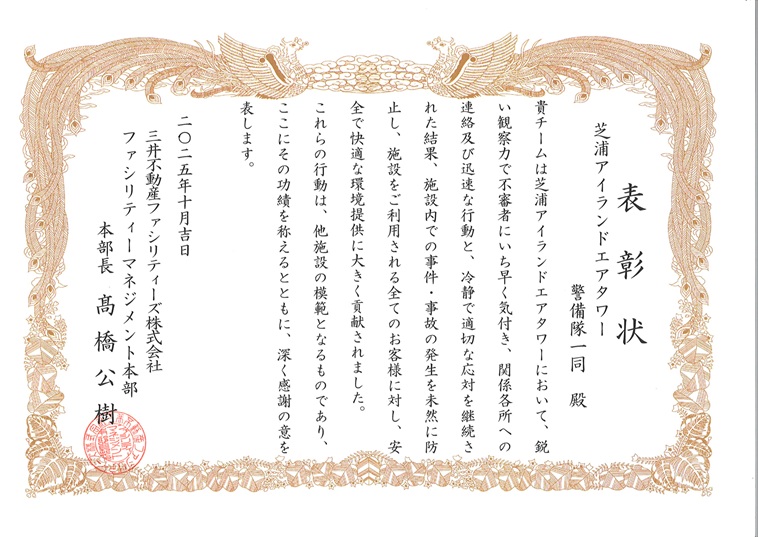 表彰状
芝浦アイランドエアタワー
警備隊一同 殿
貴チームは芝浦アイランドエアタワーにおいて、鋭
い観察力で不審者にいち早く気付き、関係各所への
連絡及び迅速な行動と、冷静で適切な応対を継続さ
れた結果、施設内での事件・事故の発生を未然に防
止し、施設をご利用される全てのお客様に対し、安
全で快適な環境提供に大きく貢献されました。
これらの行動は、他施設の模範となるものであり、
ここにその功績を称えるとともに、深く感謝の意を
表します。
二〇二五年十月吉日
三井不動産ファシリティーズ株式会社
ファシリティーマネジメント本部
本部長 髙橋公樹